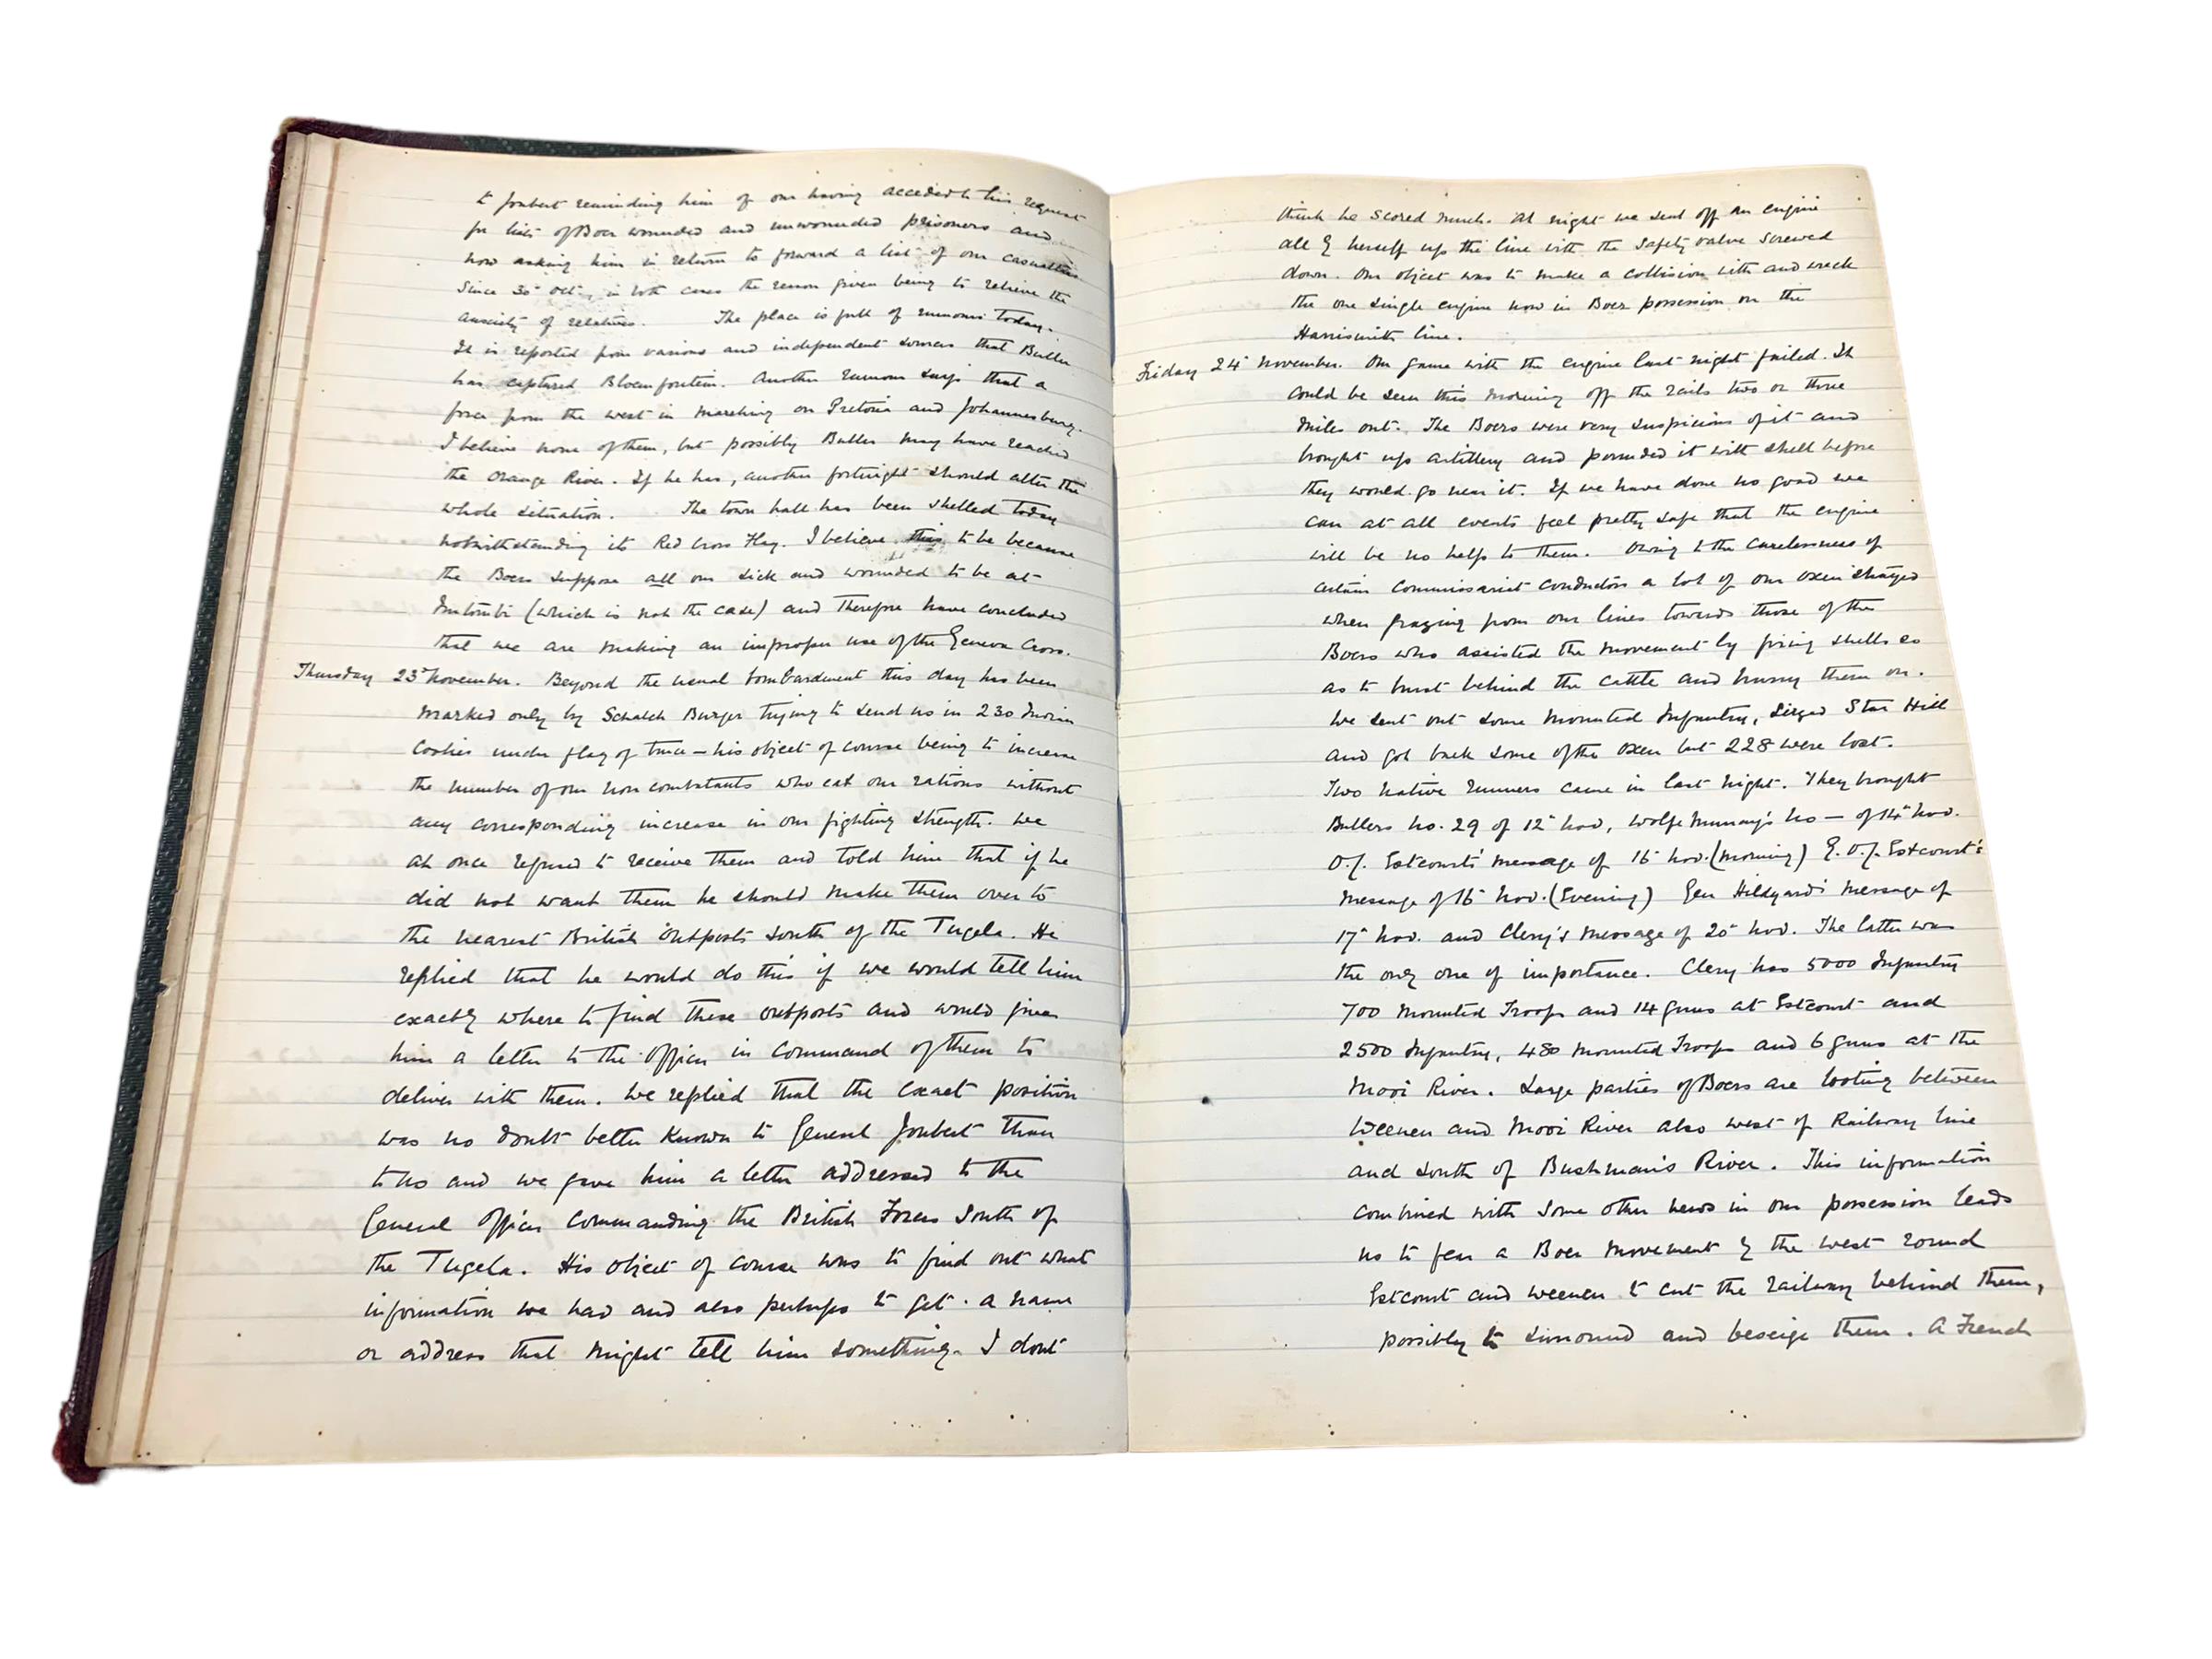 to Joubert reminding him of our having acceded to his request
for lists of Boer wounded and unwounded prisoners and
now asking him in return to forward a list of our casualties
since 30th Oct. in both cases the reason given being to relieve the
anxiety of relatives. The place is full of rumours today.
It is reported from various and independent sources that Buller
has captured Bloemfontein. Another rumour says that a
force from the west is marching on Pretoria and Johannesburg.
I believe none of them, but possibly Buller may have reached
the Orange River. If he has, another fortnight should alter the
whole situation. The town hall has been shelled today
notwithstanding its Red Cross Flag. I believe this to be because
the Boers suppose all our sick and wounded to be at
Intombi (which is not the case) and therefore have concluded
that we are making an improper use of the Geneva Cross.
Thursday 23rd November. Beyond the usual bombardment this day has been
marked only by Schalch Burger trying to send us in 230 Indian
Coolies under flag of truce – his object of course being to increase
the number of our non combatants who eat our rations without
any corresponding increase in our fighting strength. We
at once refused to receive them and told him that if he
did not want them he should make them over to
the nearest British outposts south of the Tugela. He
replied that he would do this if we would tell him
exactly where to find these outposts and would give
him a letter to the officer in command of them to
deliver with them. We replied that the exact position
was no doubt better known to General Joubert than
to us and we gave him a letter addressed to the
General Officer Commanding the British Forces South of
the Tugela. His object of course was to find out what
information we had and also perhaps to get a name
or address that might tell him something. I dont
think he scored much. At night we sent off an engine
all by herself up the line with the safety valve screwed
down. Our object was to make a collision with and wreck
the one single engine now in Boer possession on the
Harrismith line.
Friday 24th November. Our game with the engine last night failed. It
could be seen this morning off the rails two or three
miles out. The Boers were very suspicious of it and
brought up artillery and pounded it with shell before
they would go near it. If we have done no good we
can at all events feel pretty safe that the engine
will be no help to them. Owing to the carelessness of
certain Commissariat conductors a lot of our oxen strayed
when grazing from our lines towards those of the
Boers who assisted the movement by firing shells so
as to burst behind the cattle and hurry them on.
We sent out some Mounted Infantry, seized Star Hill
and got back some of the oxen but 228 were lost.
Two native runners came in last night. They brought
Bullers No. 29 of 12th Nov, Wolfe Murray's No — of 14th Nov.
O.f. Estcourts' message of 16th Nov. (morning) &. O.f. Estcourt's
message of 16th Nov. (Evening) Gen Hildyard's message of
17th Nov. and Clery's message of 20th Nov. The latter was
the only one of importance. Clery has 5000 Infantry
700 Mounted Troops and 14 guns at Estcourt and
2500 Infantry, 480 Mounted Troops and 6 guns at the
Mooi River. Large parties of Boers are looting between
Weenen and Mooi River also west of Railway line
and south of Bushman's River. This information
combined with some other news in our possession leads
us to fear a Boer movement by the west round
Estcourt and Weenen to cut the railway behind them,
possibly to surround and beseige them. A French